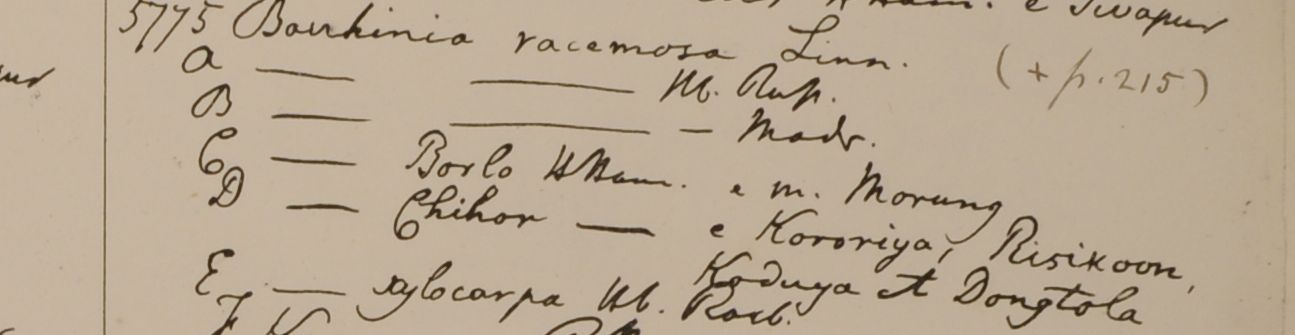 HHam. e Sivapur
5775 Bauhinia racemosa Linn. (+ p. 215)
A — — Hb. Russ.
B — — — Madr.
C — Borlo HHam. e m. Morung
D — Chihor — e Kororiya, Risikoon,
Koduya et Dongtola
E — xylocarpa Hb. Roxb.
F